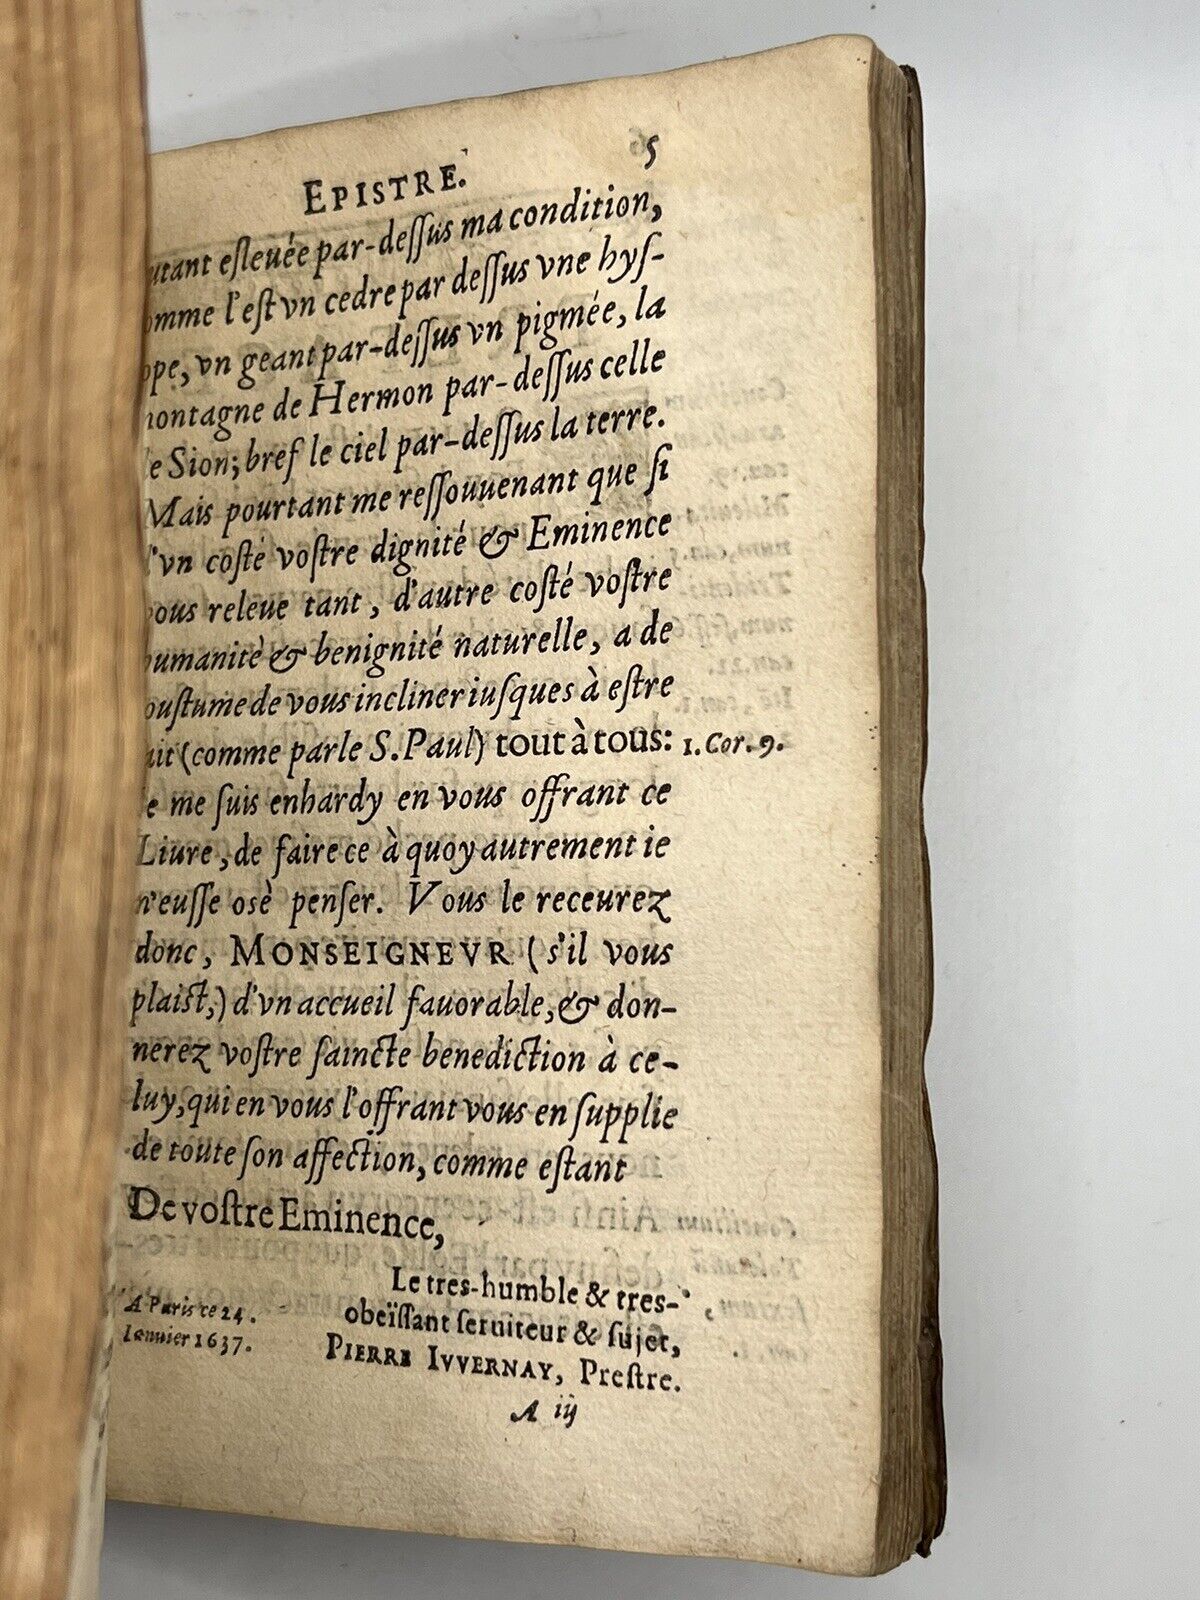 EPISTRE. 5
utant esleuée par-dessus ma condition,
omme l'est vn cedre par dessus vne hys-
ope, vn geant par-dessus vn pigmée, la
montagne de Hermon par-dessus celle
de Sion; bref le ciel par-dessus la terre.
Mais pourtant me ressouuenant que si
d'vn costé vostre dignité & Eminence
vous releue tant, d'autre costé vostre
humanitè & benignité naturelle, a de
coustume de vous incliner iusques à estre
fait (comme parle S. Paul) tout à tous: 1. Cor. 9.
Ie me suis enhardy en vous offrant ce
Liure, de faire ce à quoy autrement ie
n'eusse osè penser. Vous le receurez
donc, MONSEIGNEVR (s'il vous
plaist,) d'vn accueil fauorable, & don-
nerez vostre saincte benediction à ce-
luy, qui en vous l'offrant vous en supplie
de toute son affection, comme estant
De vostre Eminence,
Le tres-humble & tres-
obeïssant seruiteur & sujet,
PIERRE IVVERNAY, Prestre.
A Paris ce 24.
Ianuier 1637.
A iij